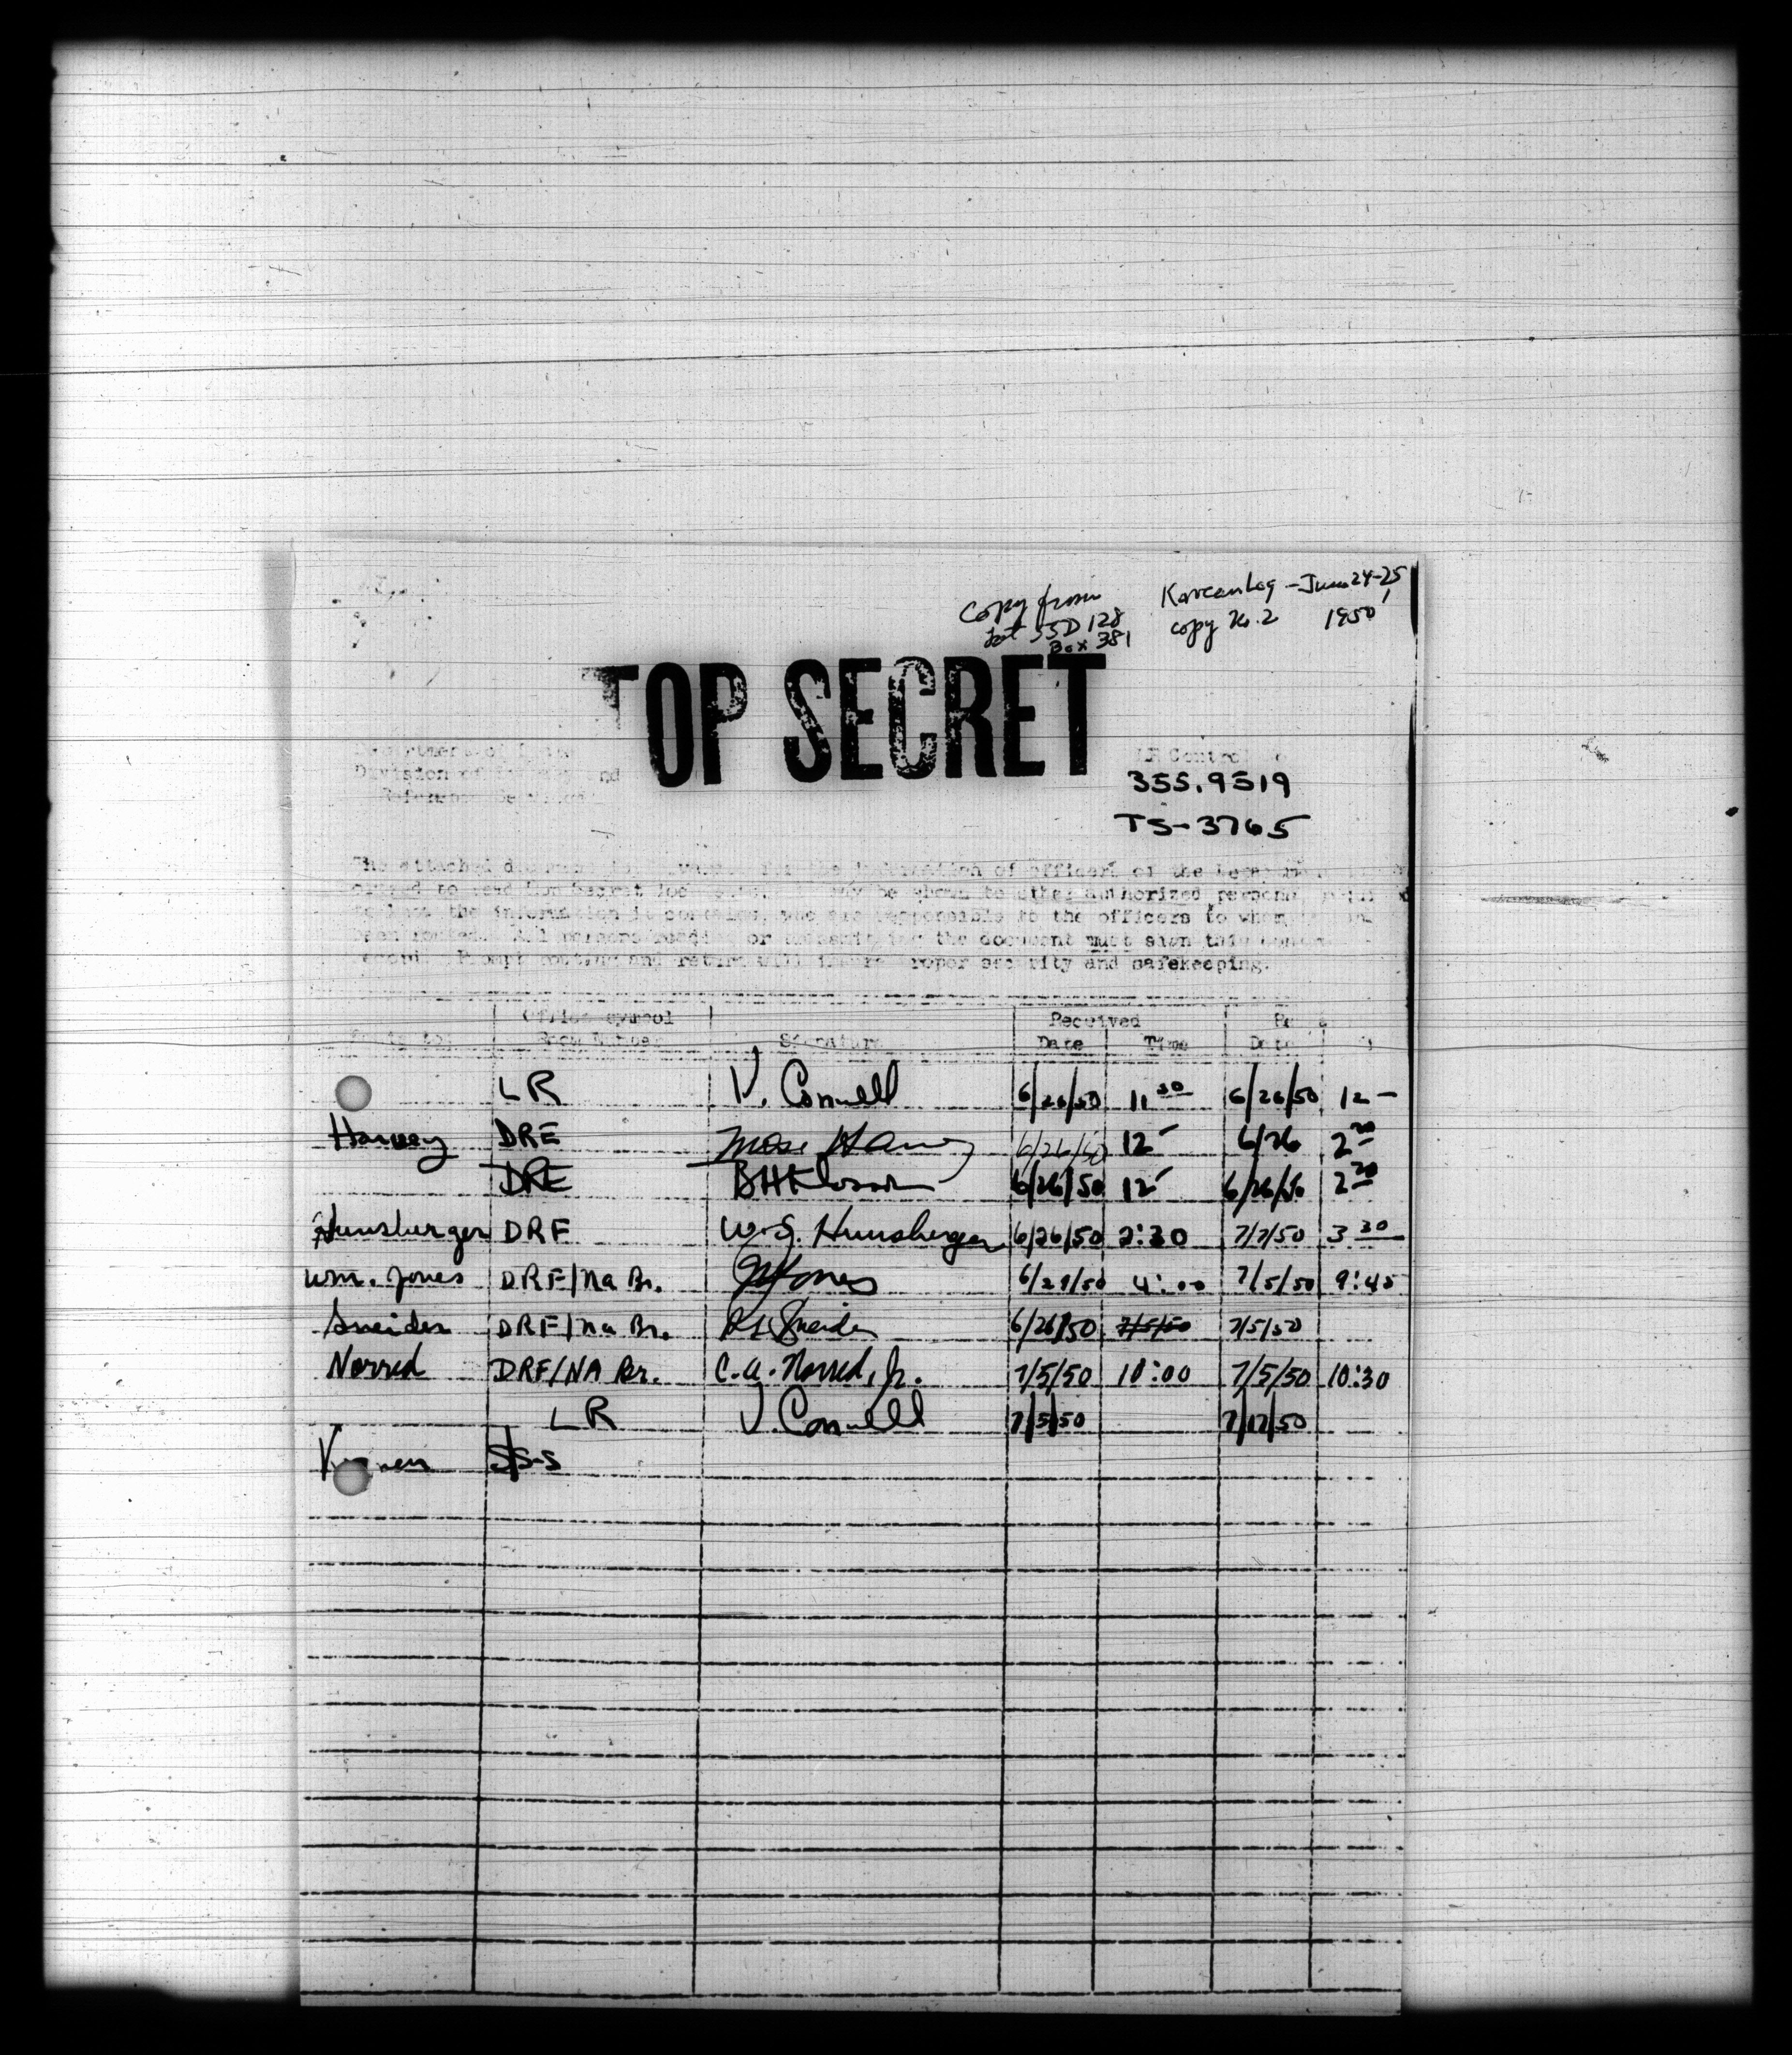 Copy from
Lot 55D 128
Box 381
Korean Log - June 24-25,
copy No. 2 1950
TOP SECRET
Department of State
Division of and
Reference Services
LR Control No
355.9519
TS-3765
The attached for the information of officers of the
to read Top Secret may be shown to other authorized personnel
the information it contains, who are responsible to the officers to whom
been routed. All persons reading or the document must sign this
Prompt routing and return will insure proper security and safekeeping.
Office symbol
Received
Room Number Signature Date Time Date
LR V. Connell 6/26/50 11 30 6/26/50 12 -
Harvey DRE Mose Harvey 6/26/50 12 - 6/26 2 30
DRE 6/26/50 12 - 6/26/50 2 30
Hunsberger DRF W. S. Hunsberger 6/26/50 2:30 7/7/50 3 30
Wm. Jones DRF/Na Br. Jones 4:00 7/5/50 9:45
Sneider DRF/Na Br. Sneider 6/26/50 7/5/50 7/5/50
Norred DRF/NA Br. C. A. Norred, Jr. 7/5/50 10:00 7/5/50 10:30
LR V. Connell 7/5/50 7/17/50
S/S-S